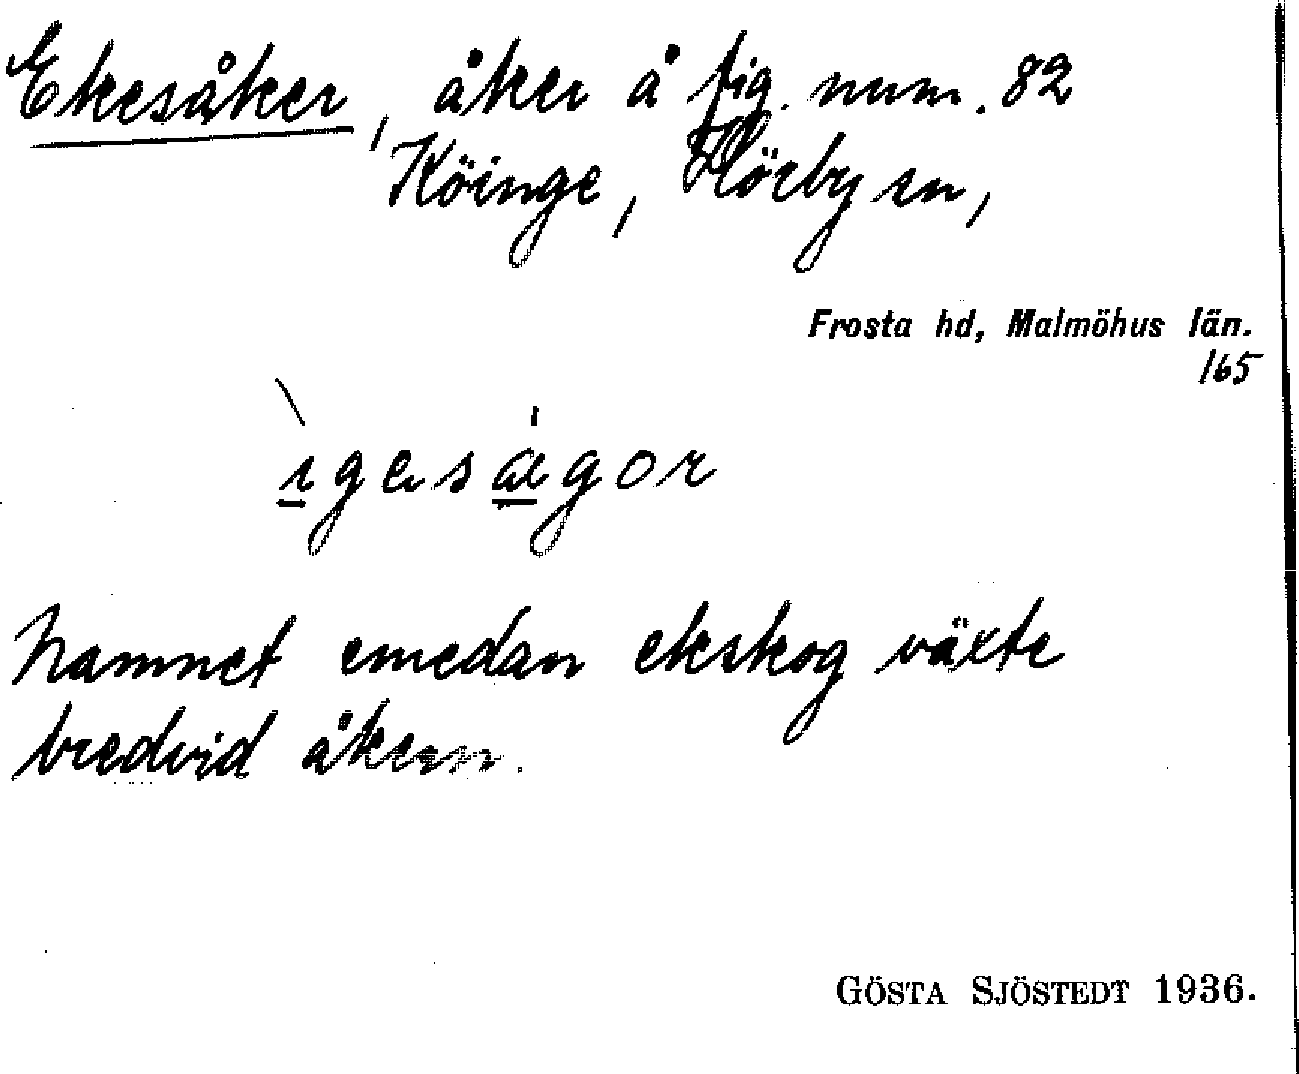 Ekesåker, åker å fig. num. 82
Köinge, Hörby sn,
Frosta hd, Malmöhus län.
165
Namnet emedan ekskog växte
bredvid åkern.
GÖSTA SJÖSTEDT 1936.